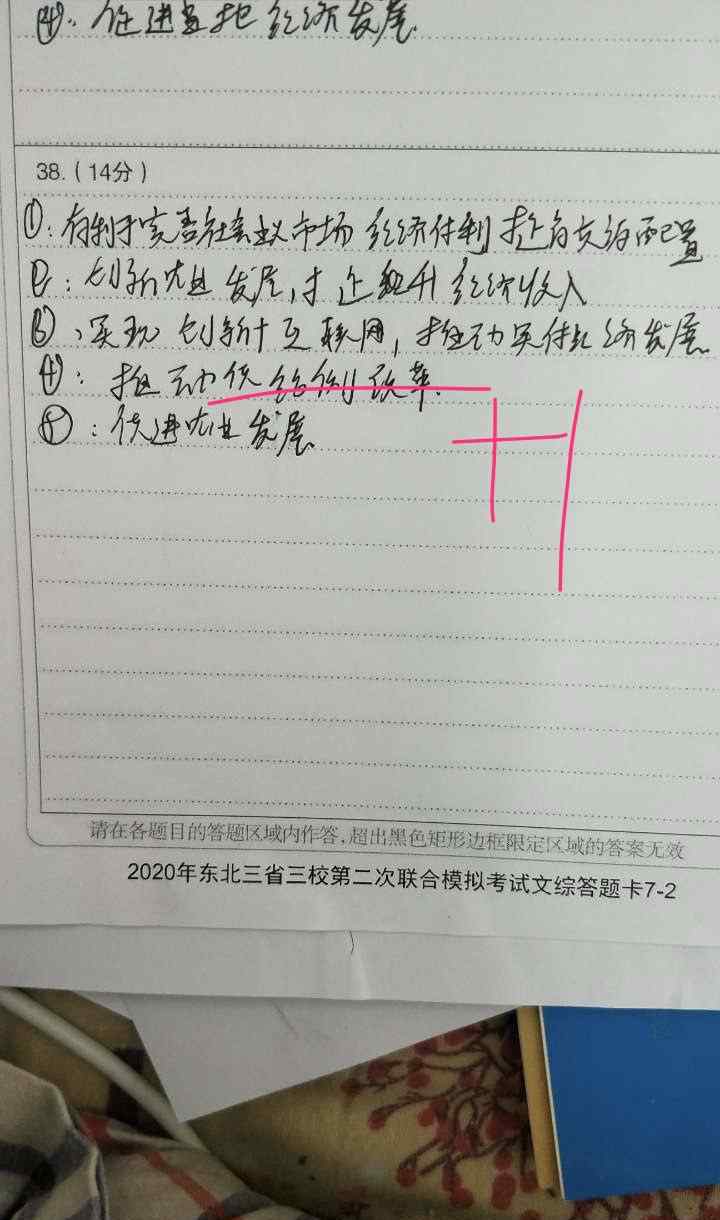 ④. 促进当地经济发展.
38.(14分)
①: 有利于完善社会主义市场经济体制 资源配置
②: 创新 发展, 经济收入
③、实现创新十互联网, 推动实体经济发展.
④: 推动供给侧改革.
⑤: 促进农业发展
请在各题目的答题区域内作答,超出黑色矩形边框限定区域的答案无效
2020年东北三省三校第二次联合模拟考试文综答题卡7-2